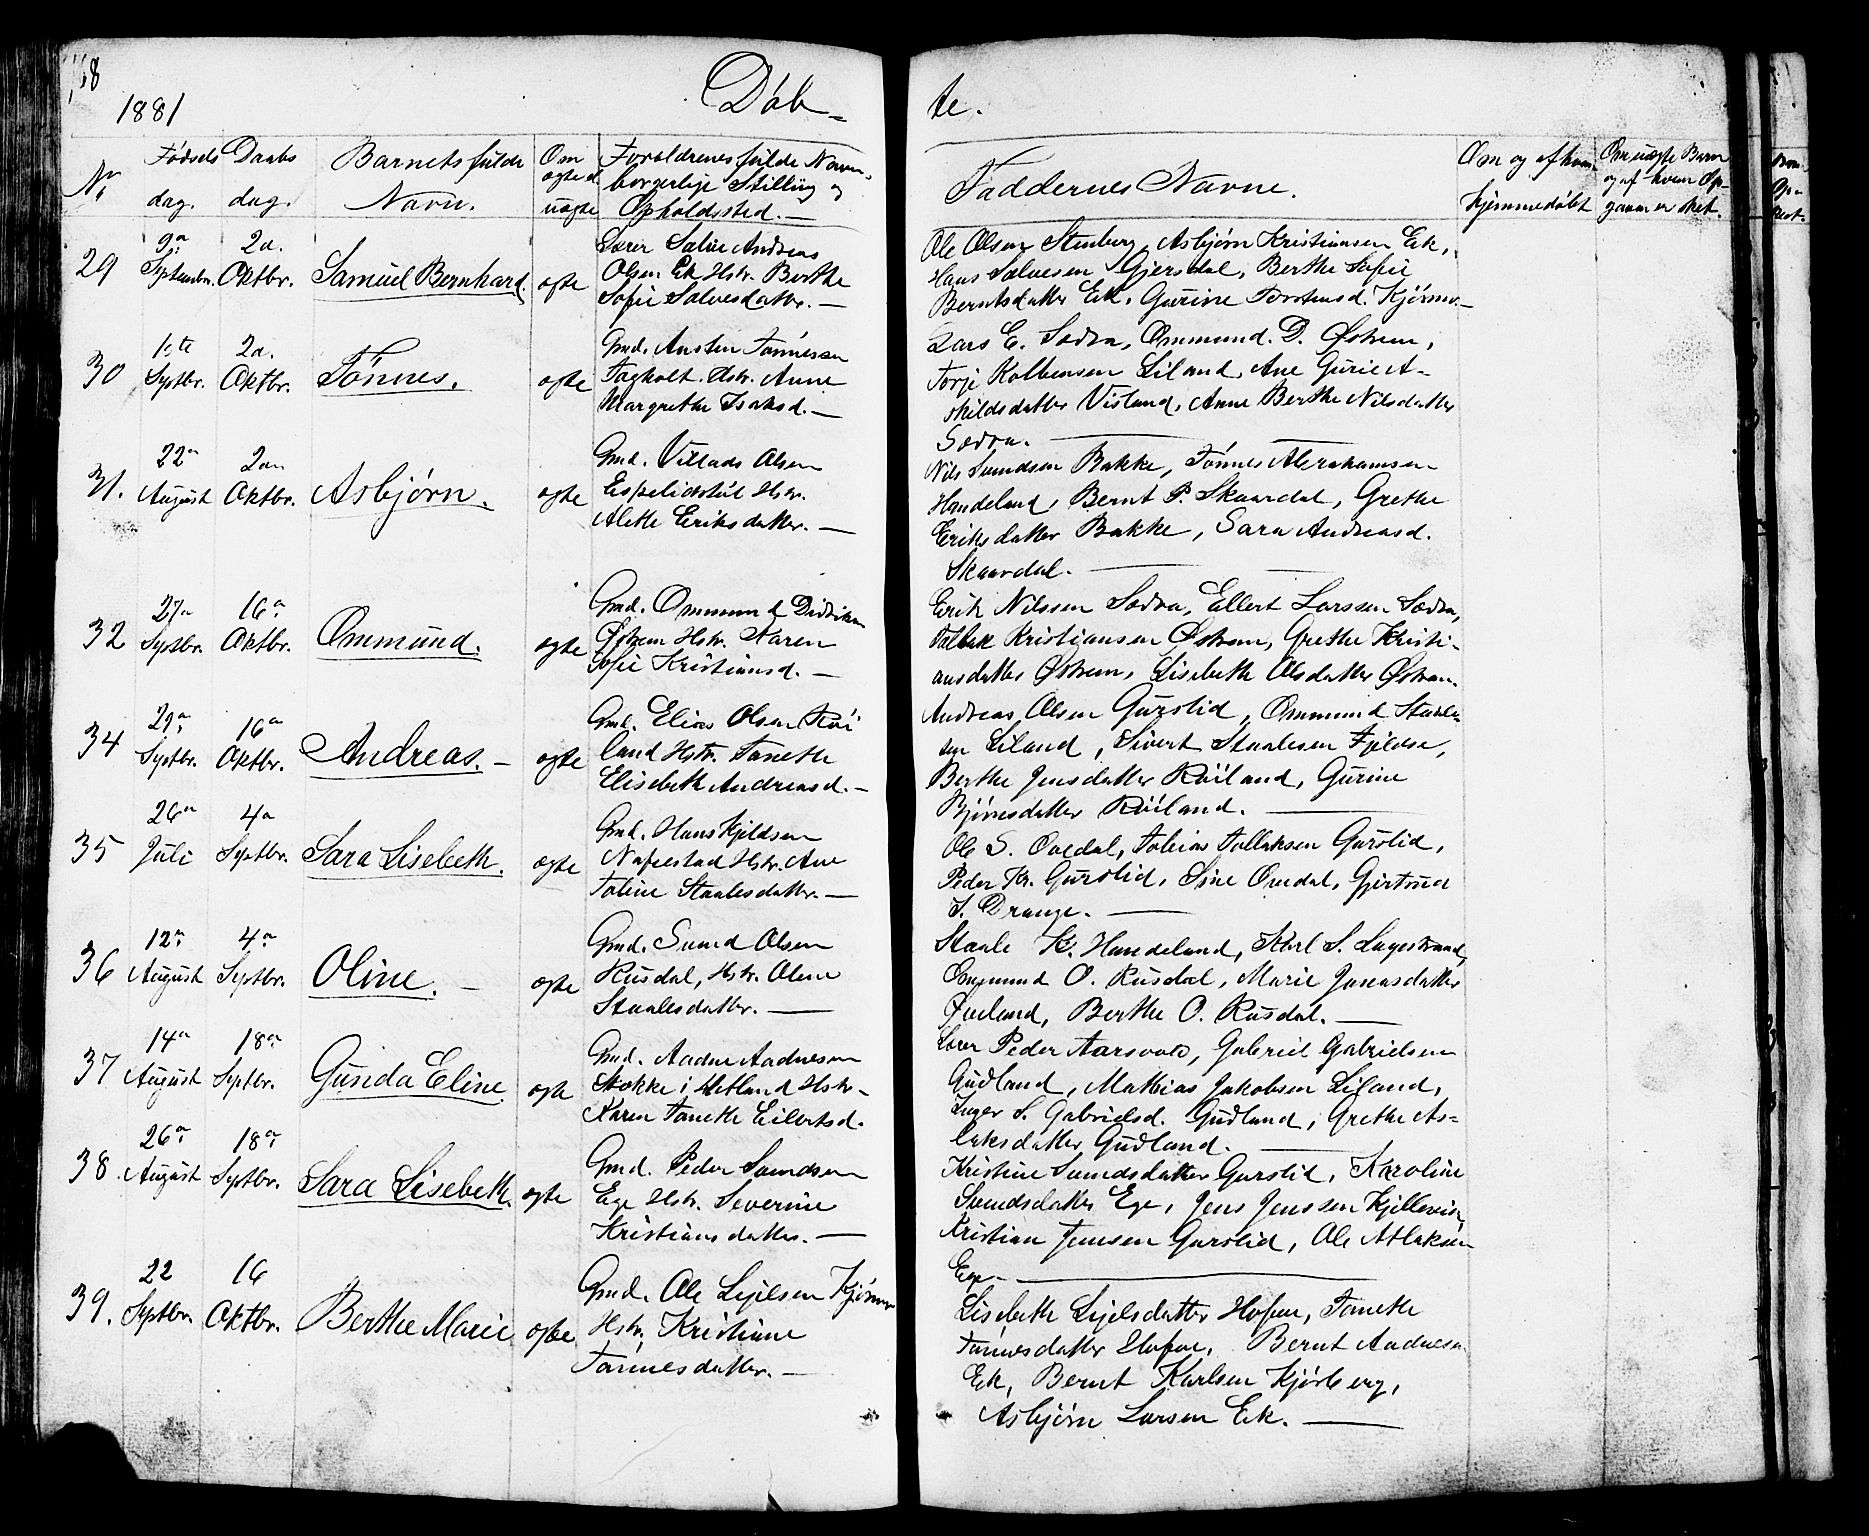 1881
Døb=
te.
No
Fødsels
dag.
Daabs
dag.
Barnets fulde
Navn.
Om
ægte el.
uægte
Forældrenes fulde Navn,
borgerlige Stilling og
Opholdssted. —
Faddernes Navne.
Om og af hvem
hjemmedøbt
Om uægte Barn
og af hvem Op-
gaven er sket.
29
9de
Septembr.
2den
Oktbr.
Samuel Bernhard
ægte
Lærer Salve Andreas
Olsen Eik Hstr. Berthe
Sofie Salvesdatter. —
Ole Olsen Stenberg, Asbjørn Kristiansen Eik,
Hans Salvesen Gjersdal, Berthe Sofie
Berntsdatter Eik, Gurine Torstensd. Kjørmo —
30
1ste
Septbr.
2d.
Oktbr.
Tönnes.
ægte
Gmd. Austen Tønnesen
Fagholt. Hstr. Anne
Margrethe Isaksd. —
Lars E. Sædra, Ommund. D. Østrem,
Torje Kolbensen Liland, Ane Gurie A-
skildsdatter Visland, Anne Berthe Nilsdatter
Sædra. —
31.
22de
August
2den
Oktbr.
Asbjørn.
ægte
Gmd. Villads Olsen
Espelidstøl Hstr.
Alette Eriksdatter. —
Nils Svendsen Bakke, Tønnes Abrahamsen
Handeland, Bernt P. Skaardal, Grethe
Eriksdatter Bakke, Sara Andreasd.
Skaardal. —
32
27de
Septbr.
16de
Oktbr.
Ommund.
ægte
Gmd. Ommund Didriksen
Østrem Hstr. Karen
Sofie Kristiansd. —
Erik Nilssen Sædra, Ellert Larssen Sædra,
Kristiansen Østrem, Grethe Kristi-
ansdatter Østrem, Lisebeth Olsdatter Østrem.
34
29de
Septbr.
16de
Oktbr.
Andreas. —
ægte
Gmd. Elias Olsen Røi
land Hstr. Tanette
Elisebeth Andreasd. —
Andreas Olsen Gurslid, Ommund Staale-
sen Liland, Sivert Staalesen Fjeldsa,
Berthe Jensdatter Røiland, Gurine
Bjørnesdatter Røiland. —
35
26de
Juli
4de
Septbr.
Sara Lisebeth.
ægte
Gmd. Hans Kjeldsen
Nafrestad Hstr. Ane
Taline Staalesdatter. —
Ole S. Ovedal, Tobias Tollaksen Gurslid,
Peder Kr. Gurslid, Sine Ovedal, Gjertrud
S. Drange. —
36
12te
August
4de
Septbr.
Oline. —
ægte
Gmd. Svend Olsen
Rusdal, Hstr. Olene
Staalesdatter. —
Staale K. Handeland, Karl S. Lagestrand,
Ommund O. Rusdal, Marie Jonasdatter
Øveland, Berthe O. Rusdal. —
37
14de
August
18de
Septbr.
Gunda Eline.
ægte
Gmd. Aadne Aadnesen
Stokke i Hetland Hstr.
Karen Tanette Eilertsd.
Lærer Peder Aarsvold, Gabriel Gabrielsen
Gudland, Mathias Jakobsen Liland,
Inger S. Gabrielsd. Gudland, Grethe As-
laksdatter Gudland. —
38.
26de
August
18de
Septbr.
Sara Lisebeth.
ægte
Gmd. Peder Svendsen
Ege Hstr. Severine
Kristiansdatter. —
Kristine Svendsdatter Gurslid, Karoline
Svendsdatter Ege, Jens Jenssen Kjellevig,
Kristian Jensen Gurslid, Ole Atlaksen
Ege. —
39.
22
Septbr.
16
Oktbr.
Berthe Marie
ægte
Gmd. Ole Lejelsen Kjørmo
Hstr. Kristiane
Tønnesdatter. —
Lisebeth Lejelsdatter Hofen, Tanette
Tønnesdatter Hofen, Bernt Aadnesen
Eik, Bernt Karlsen Kjørberg,
Asbjørn Larsen Eik. —